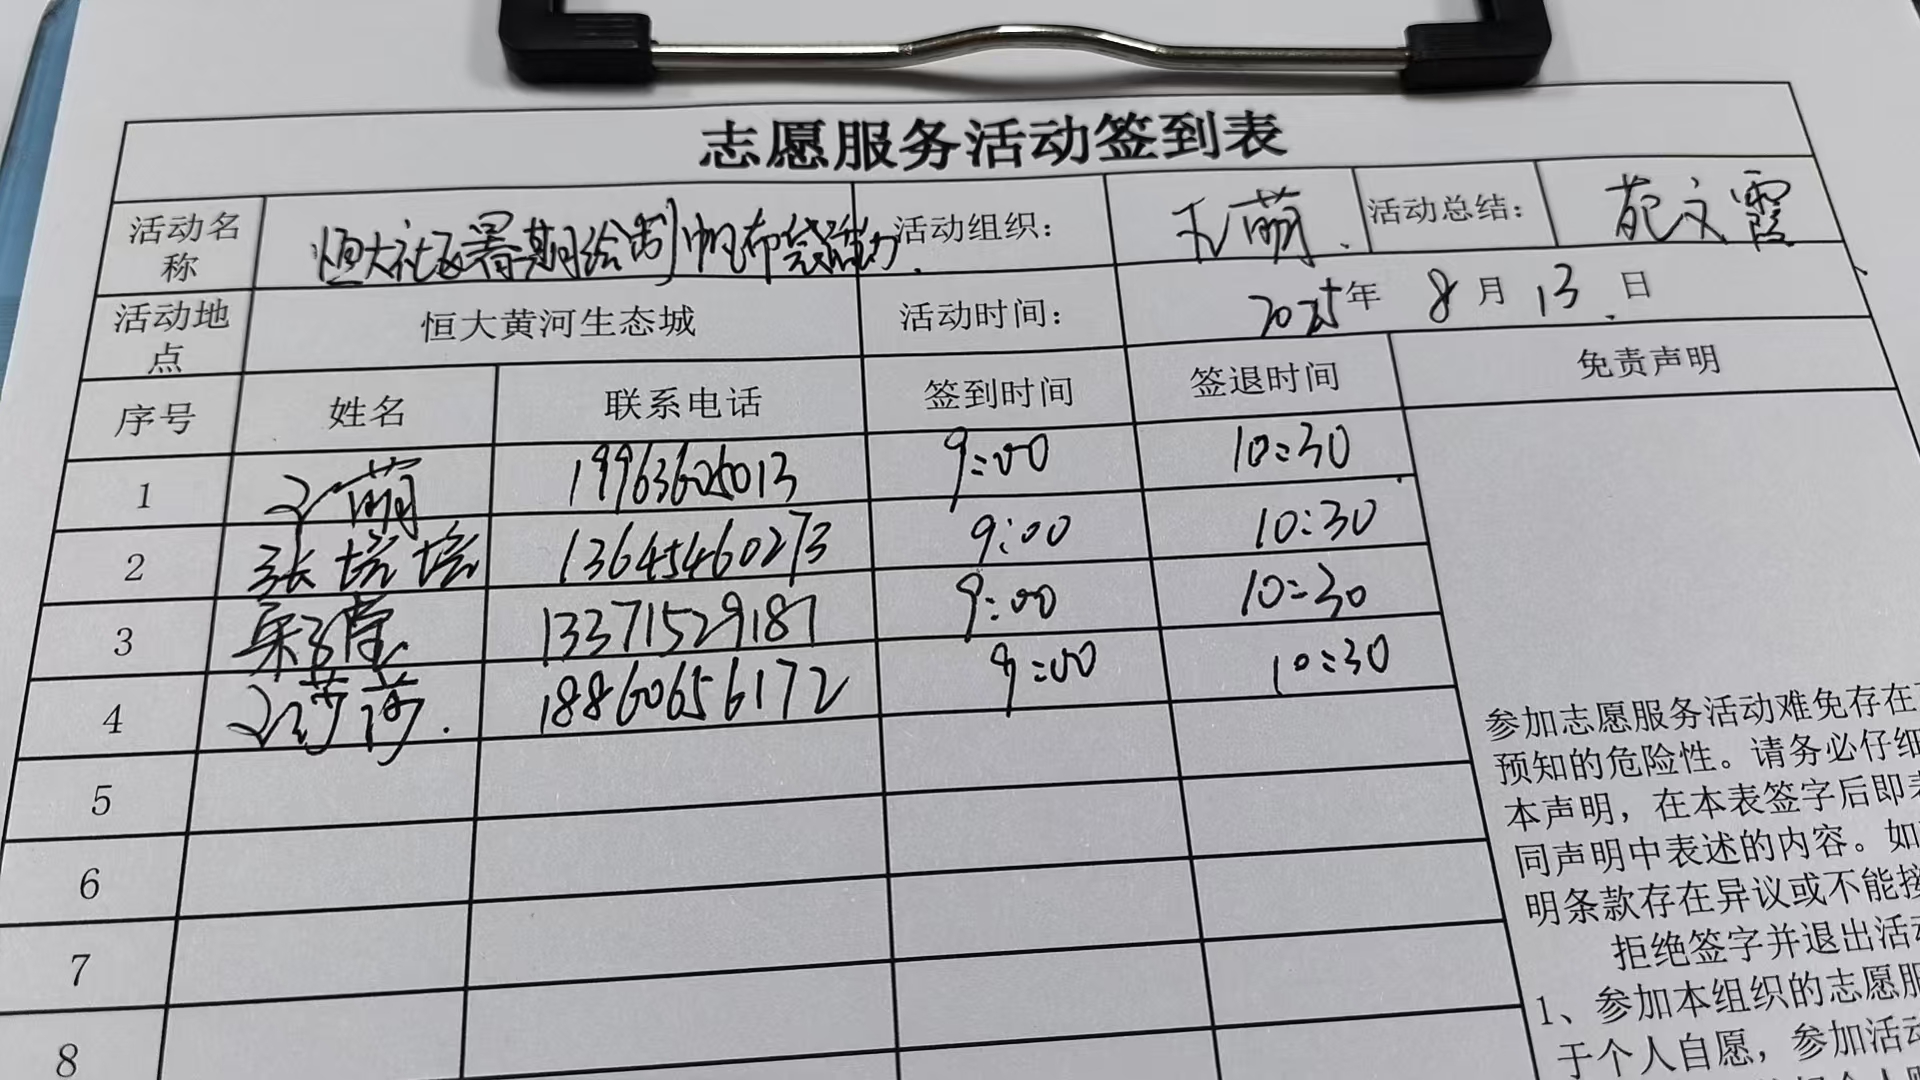 志愿服务活动签到表
活动名称 恒大社区暑期绘制帆布袋活动. 活动组织： 王萌. 活动总结： 苑文霞
活动地点 恒大黄河生态城 活动时间： 2025年 8月 13.日
序号 姓名 联系电话 签到时间 签退时间 免责声明
1 王萌 19963626013 9:00 10:30
2 张培培 13645460273 9:00 10:30
3 13371529187 9:00 10:30
4 王莎莎. 18860656172 9:00 10:30
5
6
7
8
参加志愿服务活动难免存在
预知的危险性。请务必仔细
本声明，在本表签字后即
同声明中表述的内容。如
明条款存在异议或不能接
拒绝签字并退出活动
1、参加本组织的志愿服
于个人自愿，参加活动